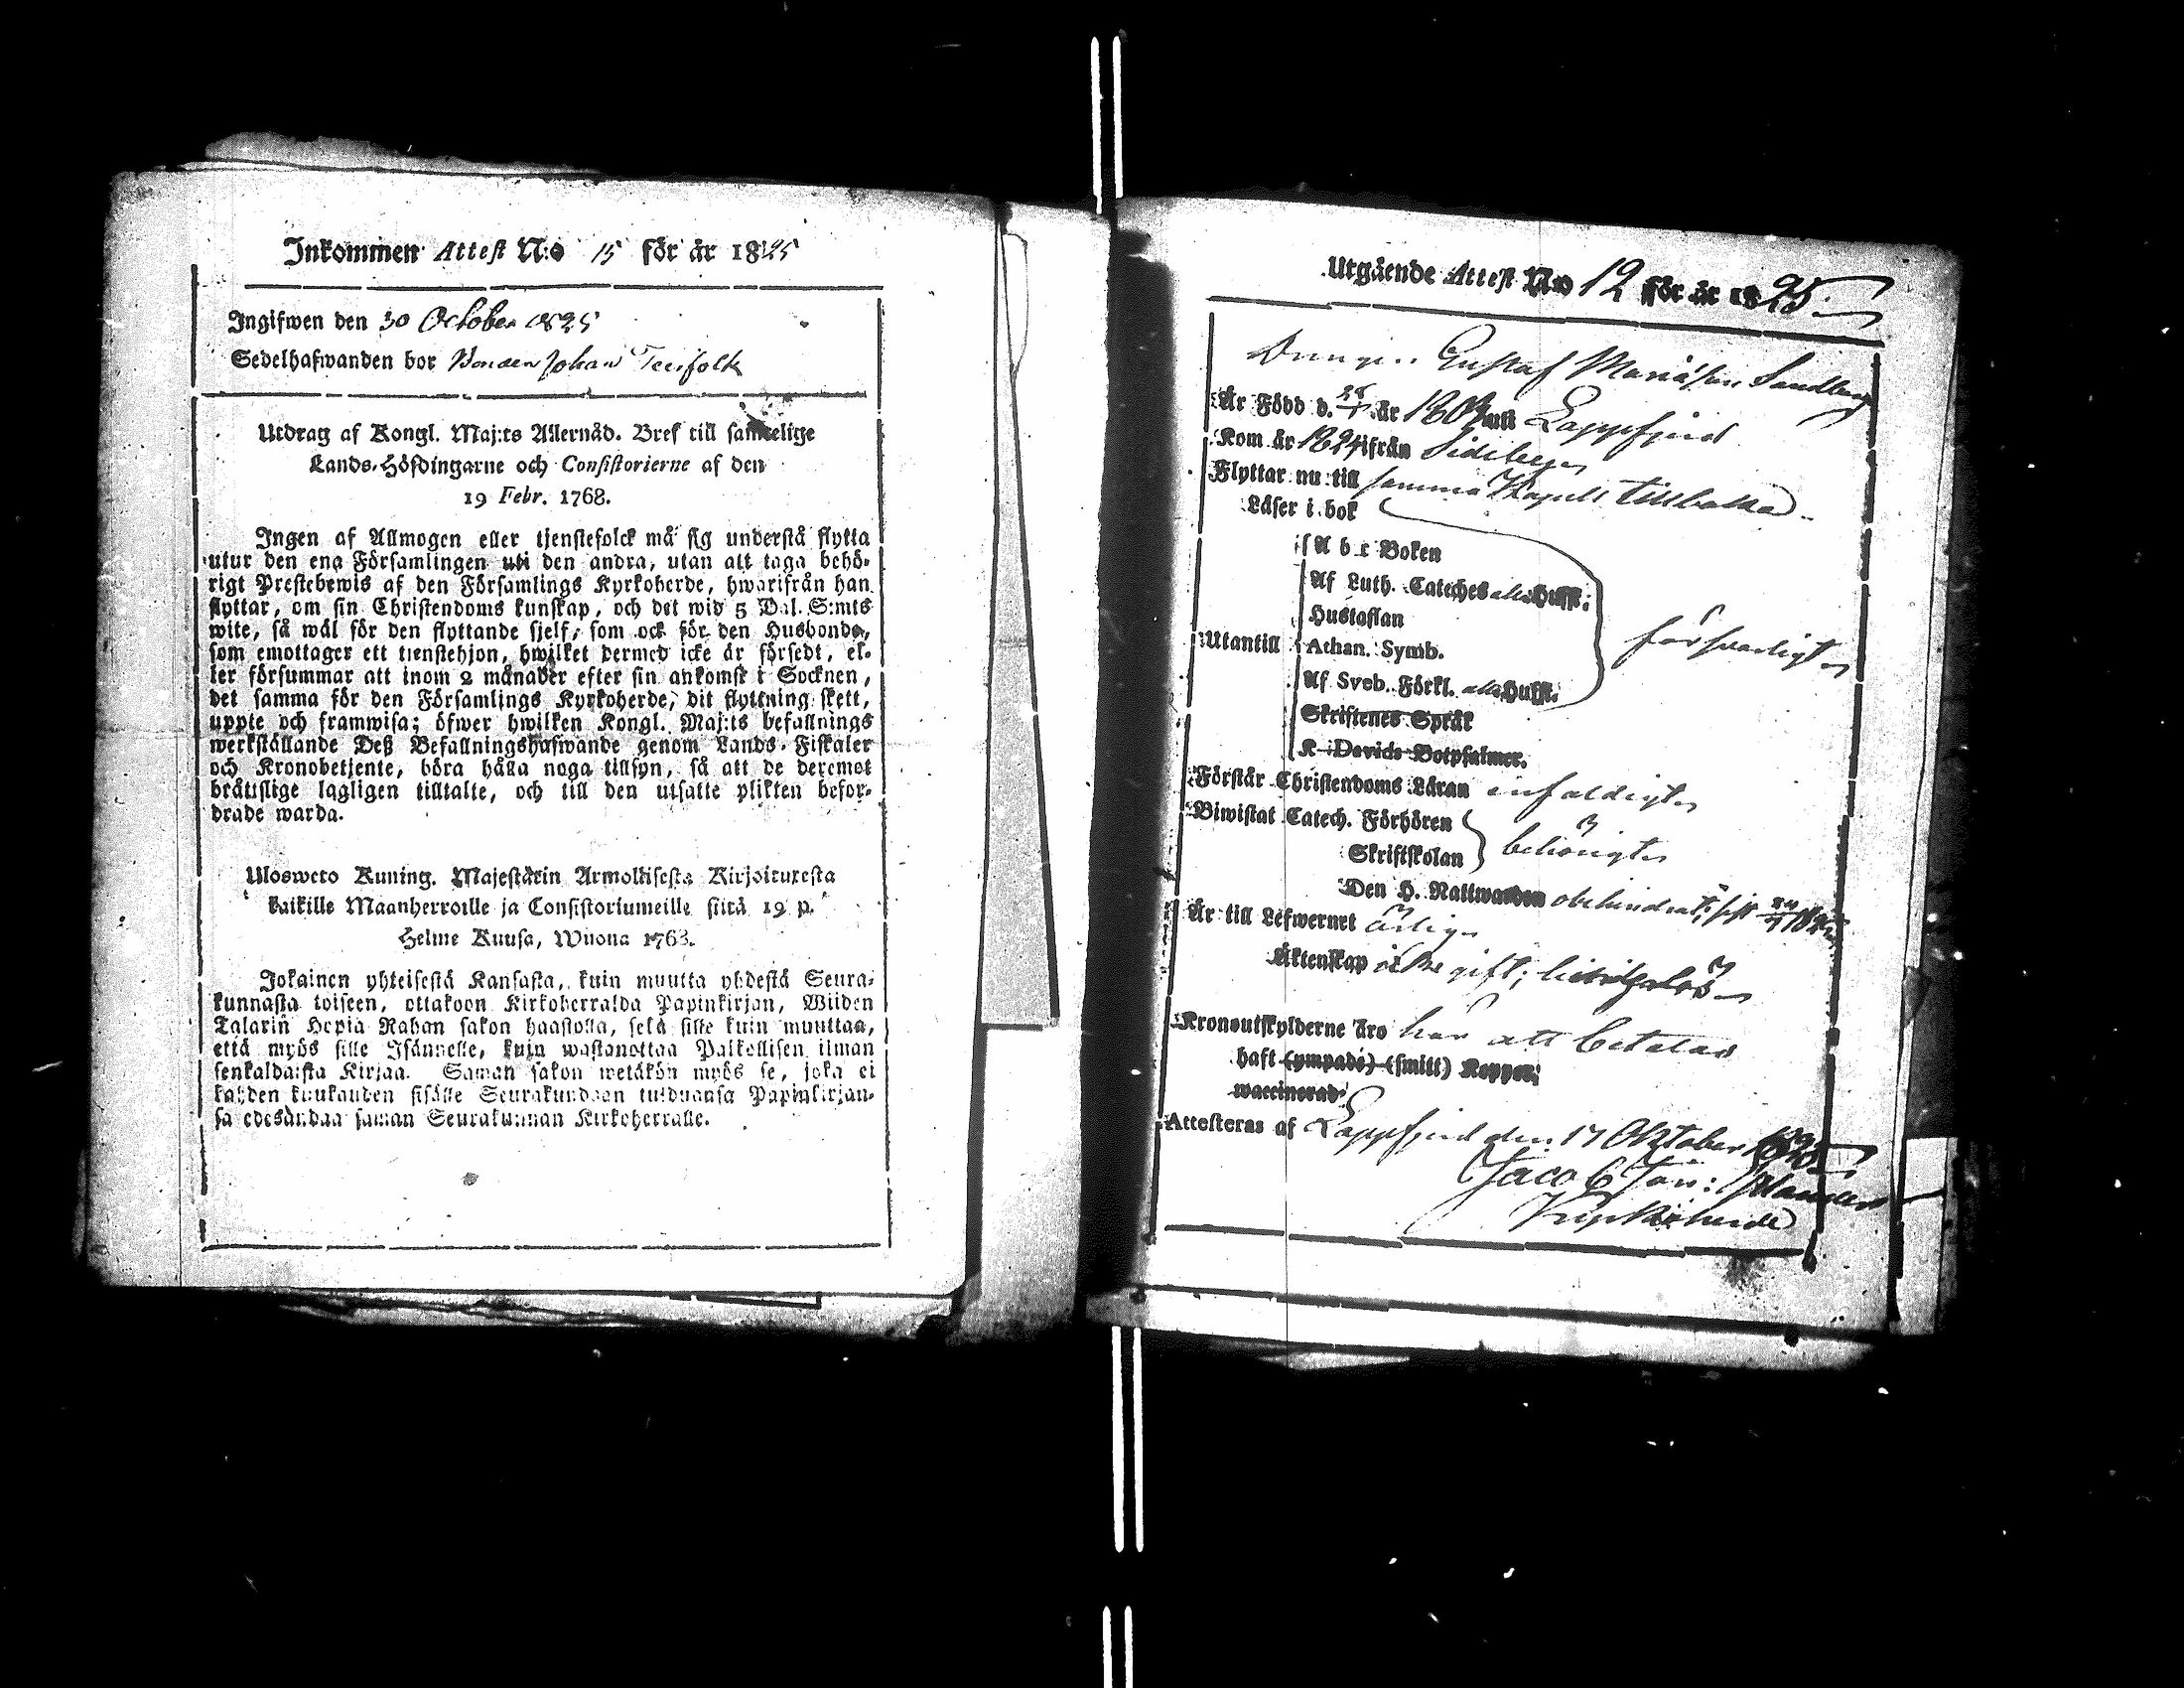 Inkommen Attest N:o 15 för år 1825
Ingifwen den 30 October 1825
Sedelhafwanden bor Bonden Johan Teirfolk
Utdrag af Kongl. Maj:ts Allernåd. Bref till samtelige
Lands-Höfdingarne och Consistorierne af den
19 Febr. 1768.
Ingen af Allmogen eller tjenstefolck må sig understå flytta
utur den ena Församlingen uti den andra, utan att taga behö-
rigt Prestebewis af den Församlings Kyrkoherde, hwarifrån han
flyttar, om sin Christendoms kunskap, och det wid 5 Dal. S:mts
wite, så wäl för den flyttande sjelf, som ock för den Husbonde,
som emottager ett tienstehjon, hwilket dermed icke är försedt, el-
ler försummar att inom 2 månader efter sin ankomst i Socknen,
det samma för den Församlings Kyrkoherde, dit flyttning skett,
uppte och framwisa; öfwer hwilken Kongl. Maj:ts befallnings
werkställande Deß Befallningshafwande genom Lands-Fiskaler
och Kronobetjente, böra hålla noga tillsyn, så att de deremot
bråttslige lagligen tilltalte, och till den utsatte plikten befor-
drade warda.
Ulosweto Kuning. Majestätin Armollisesta Kirjoituxesta
kaikille Maanherroille ja Consistoriumeille siitä 19 p.
Helme Kuusa, Wuona 1768.
Jokainen yhteisestä Kansasta, kuin muutta yhdestä Seura-
kunnasta toiseen, ottakoon Kirkoherralda Papinkirjan, Wiiden
Talarin Hopia Rahan sakon haastolla, sekä sille kuin muuttaa,
että myös sille Isännelle, kuin wastanottaa Palkollisen ilman
senkaldaista Kirjaa. Saman sakon wetäkön myös se, joka ei
kahden kuukauden sisälle Seurakundaan tulduansa Papinkirjan-
sa edesändaa saman Seurakunnan Kirkoherralle.
Utgående Attest No 12 för år 1825
Drängen Gustaf Mariæson Sandberg
Är Född d. år uti Lappfjerd
Kom år 1824 ifrån Sideby
Flyttar nu till samma Kapell tillbaka
Läser i bok
A b c Boken
Af Luth. Cateches alla Hufst.
Hustaflan
Utantill Athan. Symb. försvarligt
Af Sveb. Förkl. alla Hufst.
Skriftenes Språk
K Davids Botpsalmer.
Förstår Christendoms Läran enfaldigt
Biwistat Catech. Förhören
Skriftskolan behörigt
Den H. Nattwarden obehindrat, sist
Är till Lefwernet ärlig
Äktenskap icke gift, ledig
Kronoutskylderne äro här att betalas
haft (ympade) (smitt) Koppor;
waccinerad
Attesteras af Lappfjerd den 17 Oktober 1825
Jacob Jan:
Kyrkoherde